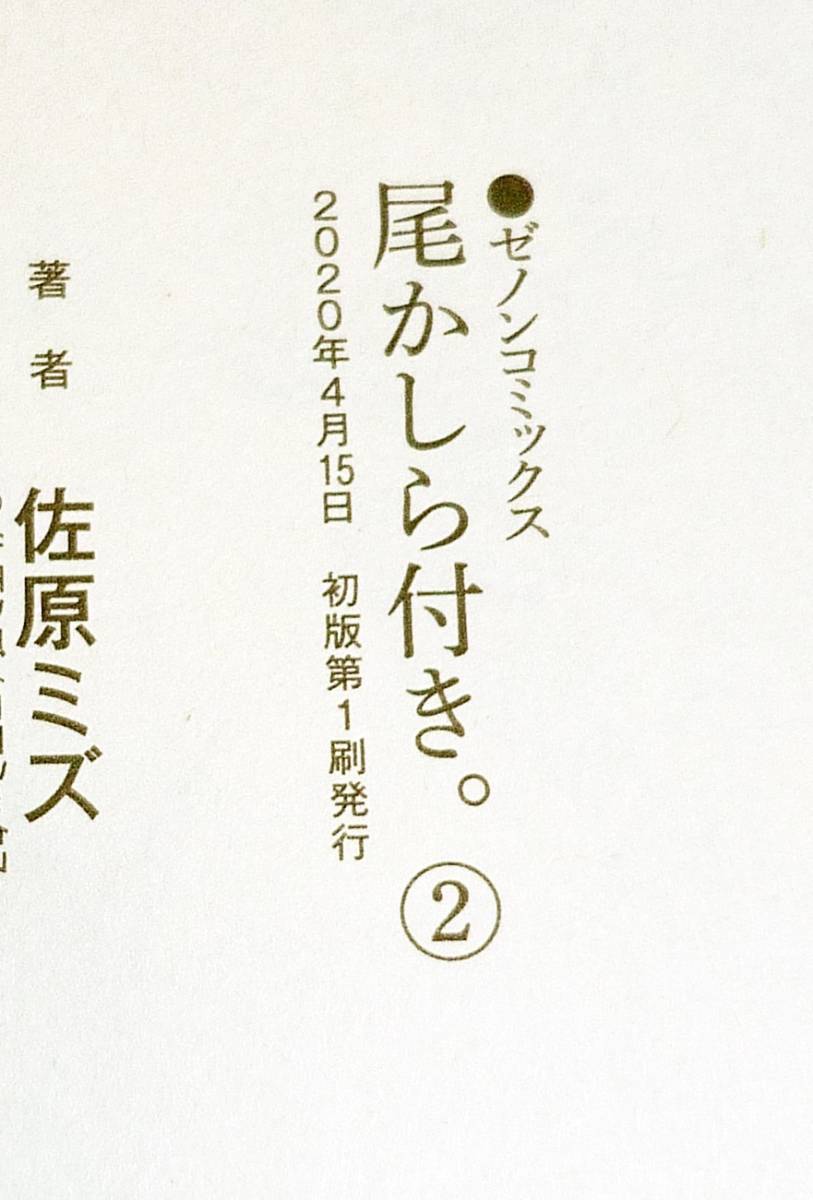 ●ゼノンコミックス
尾かしら付き。②
2020年4月15日 初版第1刷発行
著者 佐原ミズ